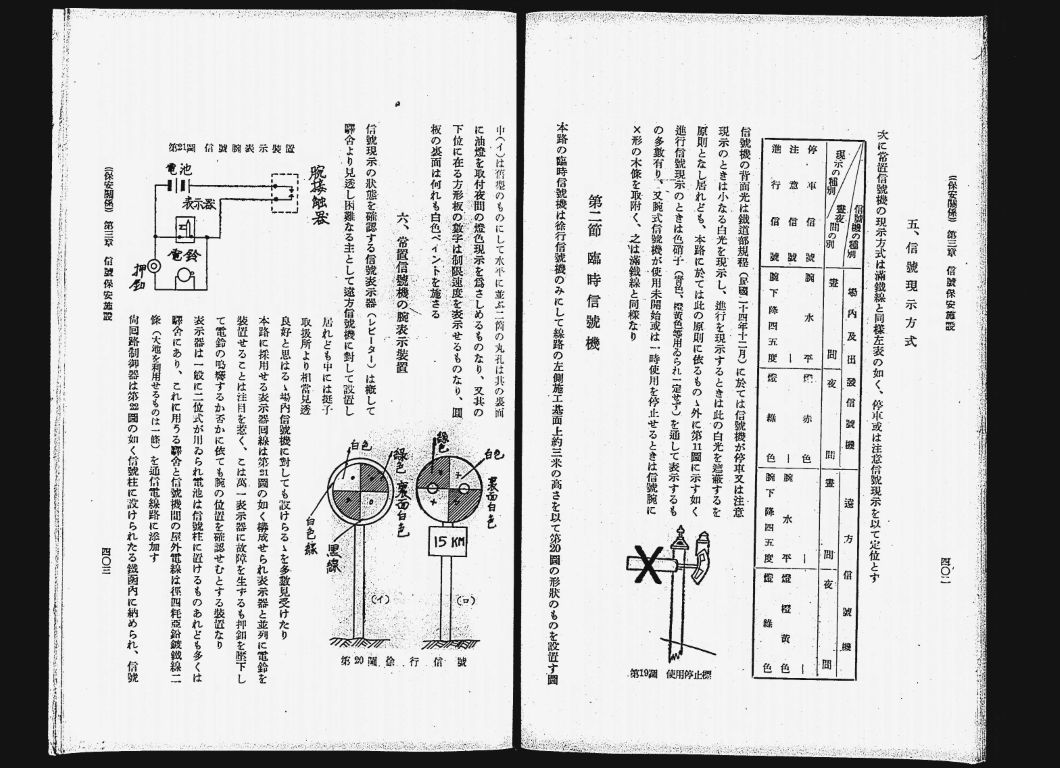 (保安關係) 第三章 信號保安施設
四〇二
五、信號現示方式
次に常置信號機の現示方式は滿鐵線と同樣左表の如く、停車或は注意信號現示を以て定位とす
信號機の種別
晝夜間の別
現示の種別
場內及出發信號機
遠方信號機
晝間
夜間
晝間
夜間
停車信號
注意信號
進行信號
腕水平
腕下降四五度
燈赤色
燈綠色
腕水平
腕下降四五度
燈橙黃色
燈綠色
信號機の背面光は鐵道部規程(民國二十四年十二月)に於ては信號機が停車又は注意
現示のときは小なる白光を現示し、進行を現示するときは此の白光を遮蔽するを
原則となし居れども、本路に於ては此の原則に依るものゝ外に第11圖に示す如く
進行信號現示のときは色硝子(靑色、橙黃色等用ゐられ一定せず)を通して表示するも
の多數有り、又腕式信號機が使用未開始或は一時使用を停止せるときは信號腕に
×形の木條を取附く、之は滿鐵線と同樣なり
第19圖 使用停止標
第二節 臨時信號機
本路の臨時信號機は徐行信號機のみにして線路の左側施工基面上約三米の高さを以て第20圖の形狀のものを設置す圖
中(イ)は舊型のものにして水平に並ぶ二箇の丸孔は其の裏面
に油燈を取付夜間の燈色現示を爲さしめるものなり、又其の
下位に在る方形板の數字は制限速度を表示せるものなり、圓
板の裏面は何れも白色ペイントを施さる
白色
綠色
裏面白色
15 KM
(ロ)
白色
綠色
裏面白色
白色線
黑線
(イ)
第20圖 徐行信號
六、常置信號機の腕表示裝置
信號現示の狀態を確認する信號表示器(レピーター)は概して
驛舍より見透し困難なる主として遠方信號機に對して設置し
居れども中には挺子
取扱所より相當見透
良好と思はるゝ場內信號機に對しても設けらるゝを多數見受けたり
本路に採用せる表示器回線は第21圖の如く構成せられ表示器と並列に電鈴を
裝置せることは注目を惹く、こは萬一表示器に故障を生ずるも押釦を壓下し
て電鈴の鳴響するか否かに依ても腕の位置を確認せむとする裝置なり
表示器は一般に二位式が用ゐられ電池は信號柱に置けるものあれども多くは
驛舍にあり、これに用うる驛舍と信號機間の屋外電線は徑四粍亞鉛鍍鐵線二
條(大地を利用せるものは一條)を通信電線路に添加す
尙回路制御器は第22圖の如く信號柱に設けられたる鐵函內に納められ、信號
腕接触器
電池
表示器
電鈴
押釦
第21圖 信號腕表示裝置
(保安關係) 第三章 信號保安施設
四〇三